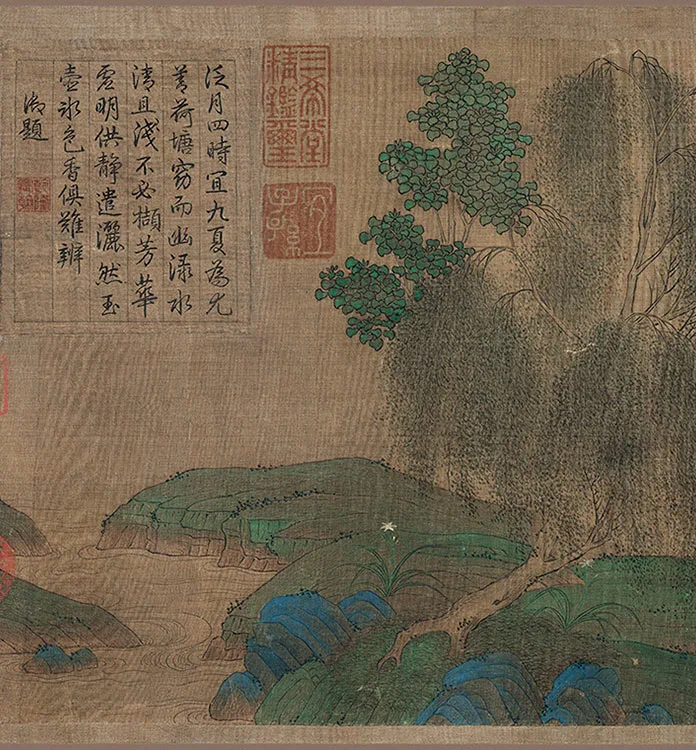 泛月四時宜九夏為尤
善荷塘窈而幽淥水
清且淺不必擷芳華
虛明供靜遣灑然玉
壺冰色香俱難辨
御題
三希堂精鑑璽
宜子孫